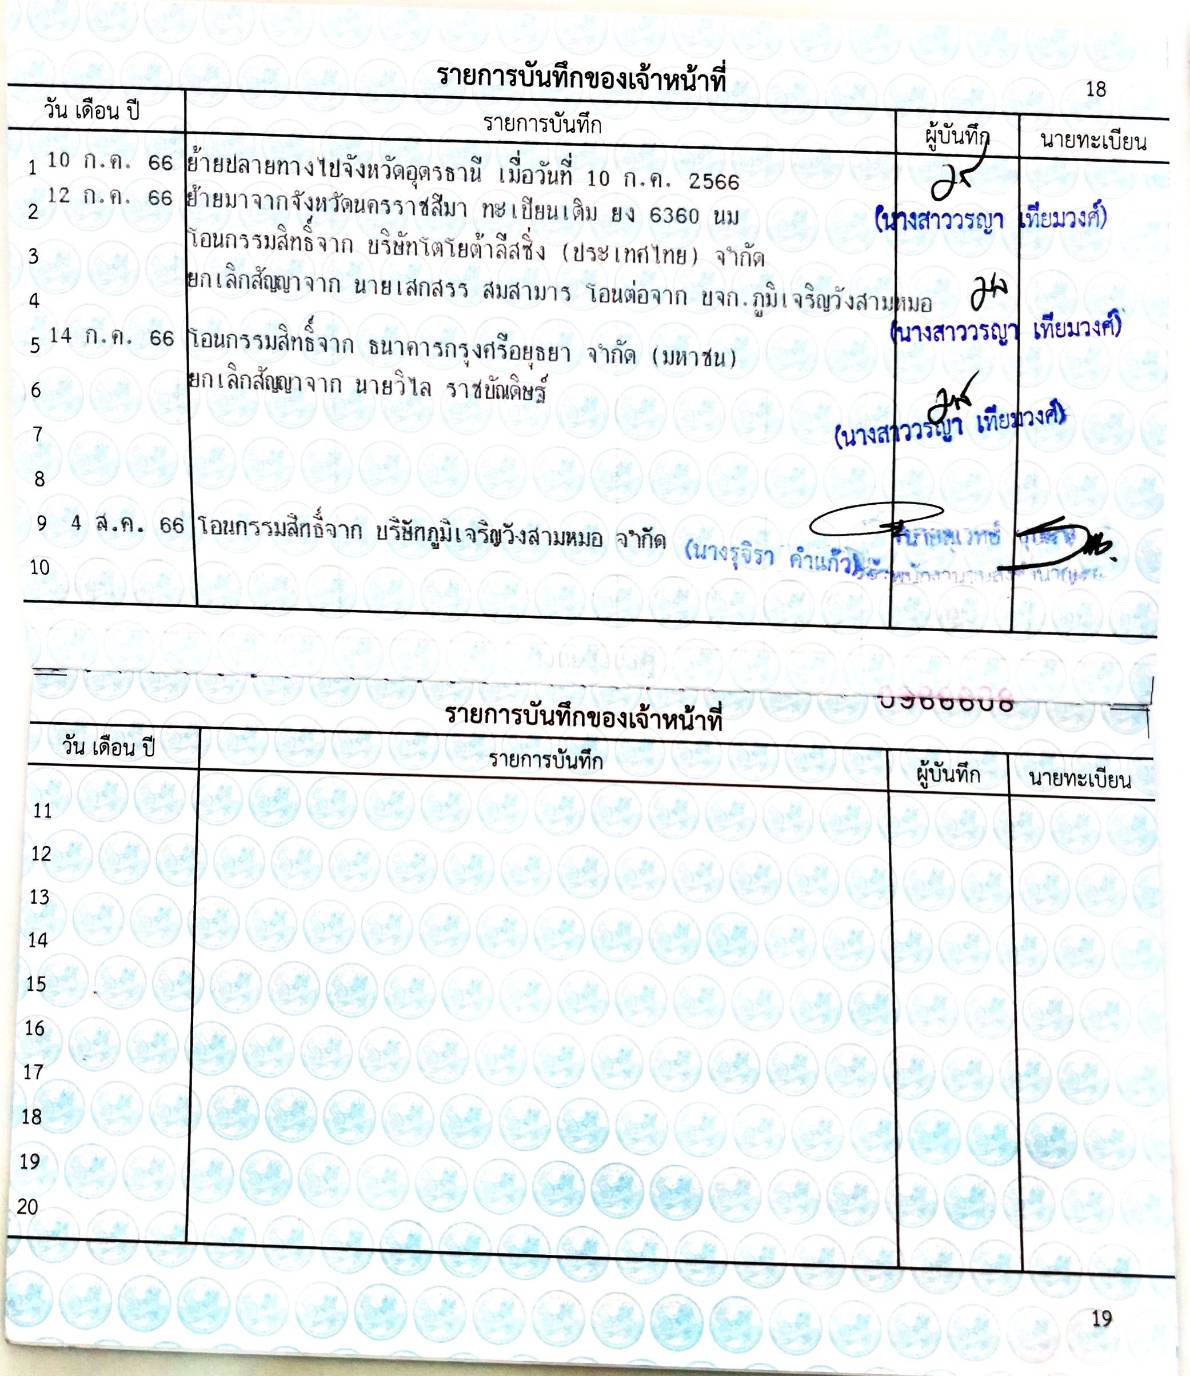 รายการบันทึกของเจ้าหน้าที่ 18
วัน เดือน ปี รายการบันทึก ผู้บันทึก นายทะเบียน
1 10 ก.ค. 66 ย้ายปลายทางไปจังหวัดอุดรธานี เมื่อวันที่ 10 ก.ค. 2566
2 12 ก.ค. 66 ย้ายมาจากจังหวัดนครราชสีมา ทะเบียนเดิม ยง 6360 นม (นางสาววรญา เทียมวงศ์)
3 โอนกรรมสิทธิ์จาก บริษัทโตโยต้าลีสซิ่ง (ประเทศไทย) จำกัด
4 ยกเลิกสัญญาจาก นายเสกสรร สมสามาร โอนต่อจาก บจก.ภูมิเจริญวังสามหมอ
(นางสาววรญา เทียมวงศ์)
5 14 ก.ค. 66 โอนกรรมสิทธิ์จาก ธนาคารกรุงศรีอยุธยา จำกัด (มหาชน)
6 ยกเลิกสัญญาจาก นายวิไล ราชบัณดิษฐ์
7 (นางสาววรญา เทียมวงศ์)
8
9 4 ส.ค. 66 โอนกรรมสิทธิ์จาก บริษัทภูมิเจริญวังสามหมอ จำกัด (นางรุจิรา คำแก้ว)
10
รายการบันทึกของเจ้าหน้าที่
วัน เดือน ปี รายการบันทึก ผู้บันทึก นายทะเบียน
11
12
13
14
15
16
17
18
19
20
19